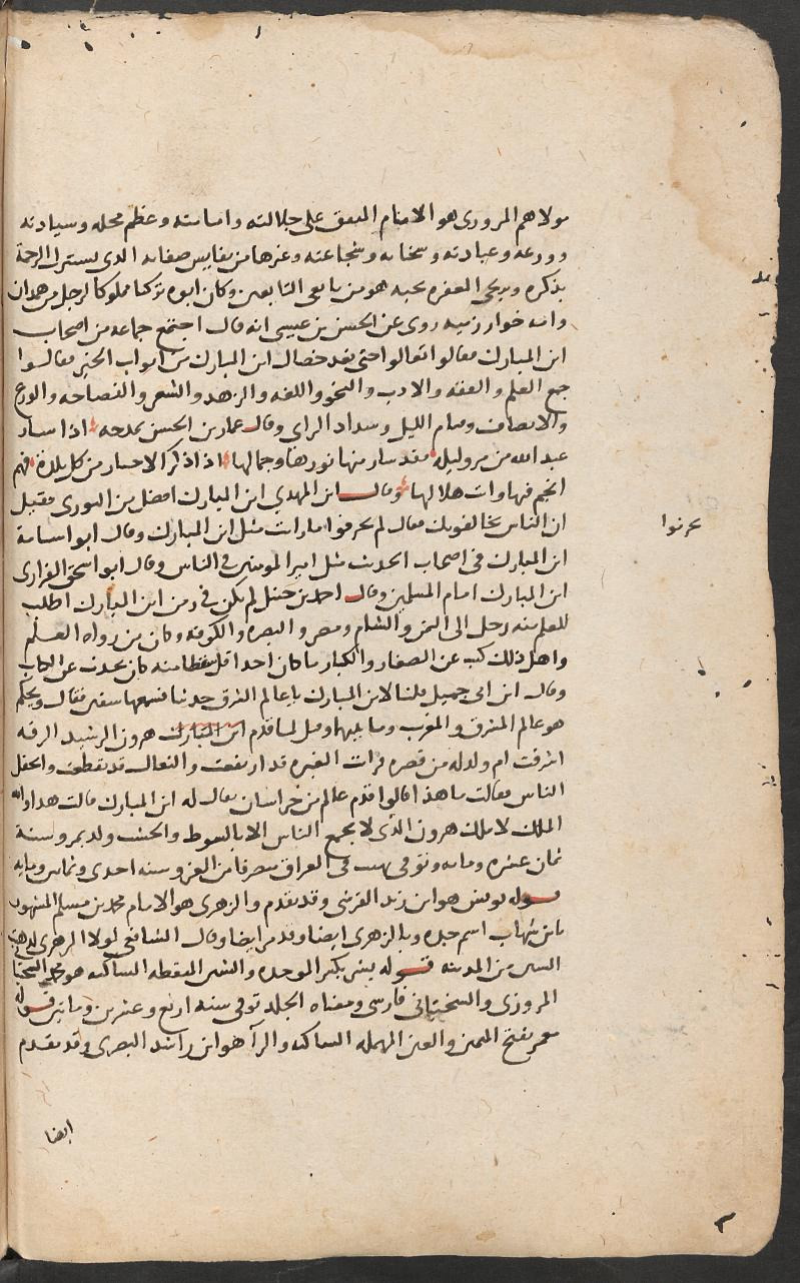 مولاهم المروزى هو الامام المتفق على جلالته وامامته وعظم محله وسيادته
وورعه وعبادته وسخائه وشجاعته وغيرها من نفايس صفاته الذى تستنزل الرحمة
بذكره ويرتجى المغفره بحبه هو من تابعى التابعين وكان ابوه تركيا مملوكا لرجل من همدان
وامه خوارزميه روى عن الحسن بن عيسى انه قال اجتمع جماعه من اصحاب
ابن المبارك فقالوا تعالوا حتى نعد خصال ابن المبارك من ابواب الخير فقالوا
جمع العلم والفقه والادب والنحو واللغه والزهد والشعر والفصاحه والورع
والانصاف وقيام الليل وسداد الراى وقال عمار بن الحسن يمدحه اذا سار
عبد الله من مرو ليله فقد سار منها نورها وجمالها اذا ذكر الاحبار من كل بلدة فهم
انجم فيها وانت هلالها وقال ابن المهدي ابن المبارك افضل من الثورى فقيل
ان الناس يخالفونك فقال لم يعرفوا ما رايت مثل ابن المبارك وقال ابو اسامة
ابن المبارك فى اصحاب الحديث مثل امير المومنين فى الناس وقال ابو اسحق الفزارى
ابن المبارك امام المسلمين وقال احمد بن حنبل لم يكن فى زمن ابن المبارك اطلب
للعلم منه رحل الى اليمن والشام ومصر والبصره والكوفه وكان من رواه العلم
واهل ذلك كتب عن الصغار والكبار ما كان احد اقل سقطا منه كان يحدث عن الكتاب
وقال ابن ابى جميل قلنا لابن المبارك يا عالم الشرق حدثنا فسمعها سفين فقال ويحكم
هو عالم المشرق والمغرب وما بينهما وقيل لما قدم ابن المبارك هرون الرشيد الرقه
اشرفت ام ولد له من قصره فرات الغبره قد ارتفعت والنعال قد تقطعت وانجفل
الناس فقالت ما هذا قالوا قدم عالم من خراسان يقال له ابن المبارك قالت هذا والله
الملك لا ملك هرون الذى لا يجمع الناس الا بالسوط والخشب ولد بمرو سنة
ثمان عشره ومائه وتوفى بهيت فى العراق منصرفا من الغزو سنه احدى وثمانين ومايه
قوله يونس هو ابن يزيد القرشى وقد تقدم والزهرى هو الامام محمد بن مسلم المشهور
بابن شهاب اسم جده وبالزهرى ايضا وقد مر ايضا وقال الشافعى لولا الزهرى لذهبت
السنن من المدينه قوله بشر بكسر الموحده والشين المنقطه الساكنه هو محمد السختيا
المروزى والسختيانى فارسى ومعناه الجلد توفى سنه اربع وعشرين ومايتين قوله
معمر بفتح الميمين والعين المهمله الساكنه والرآ هو ابن راشد البصرى وقد تقدم
ايضا